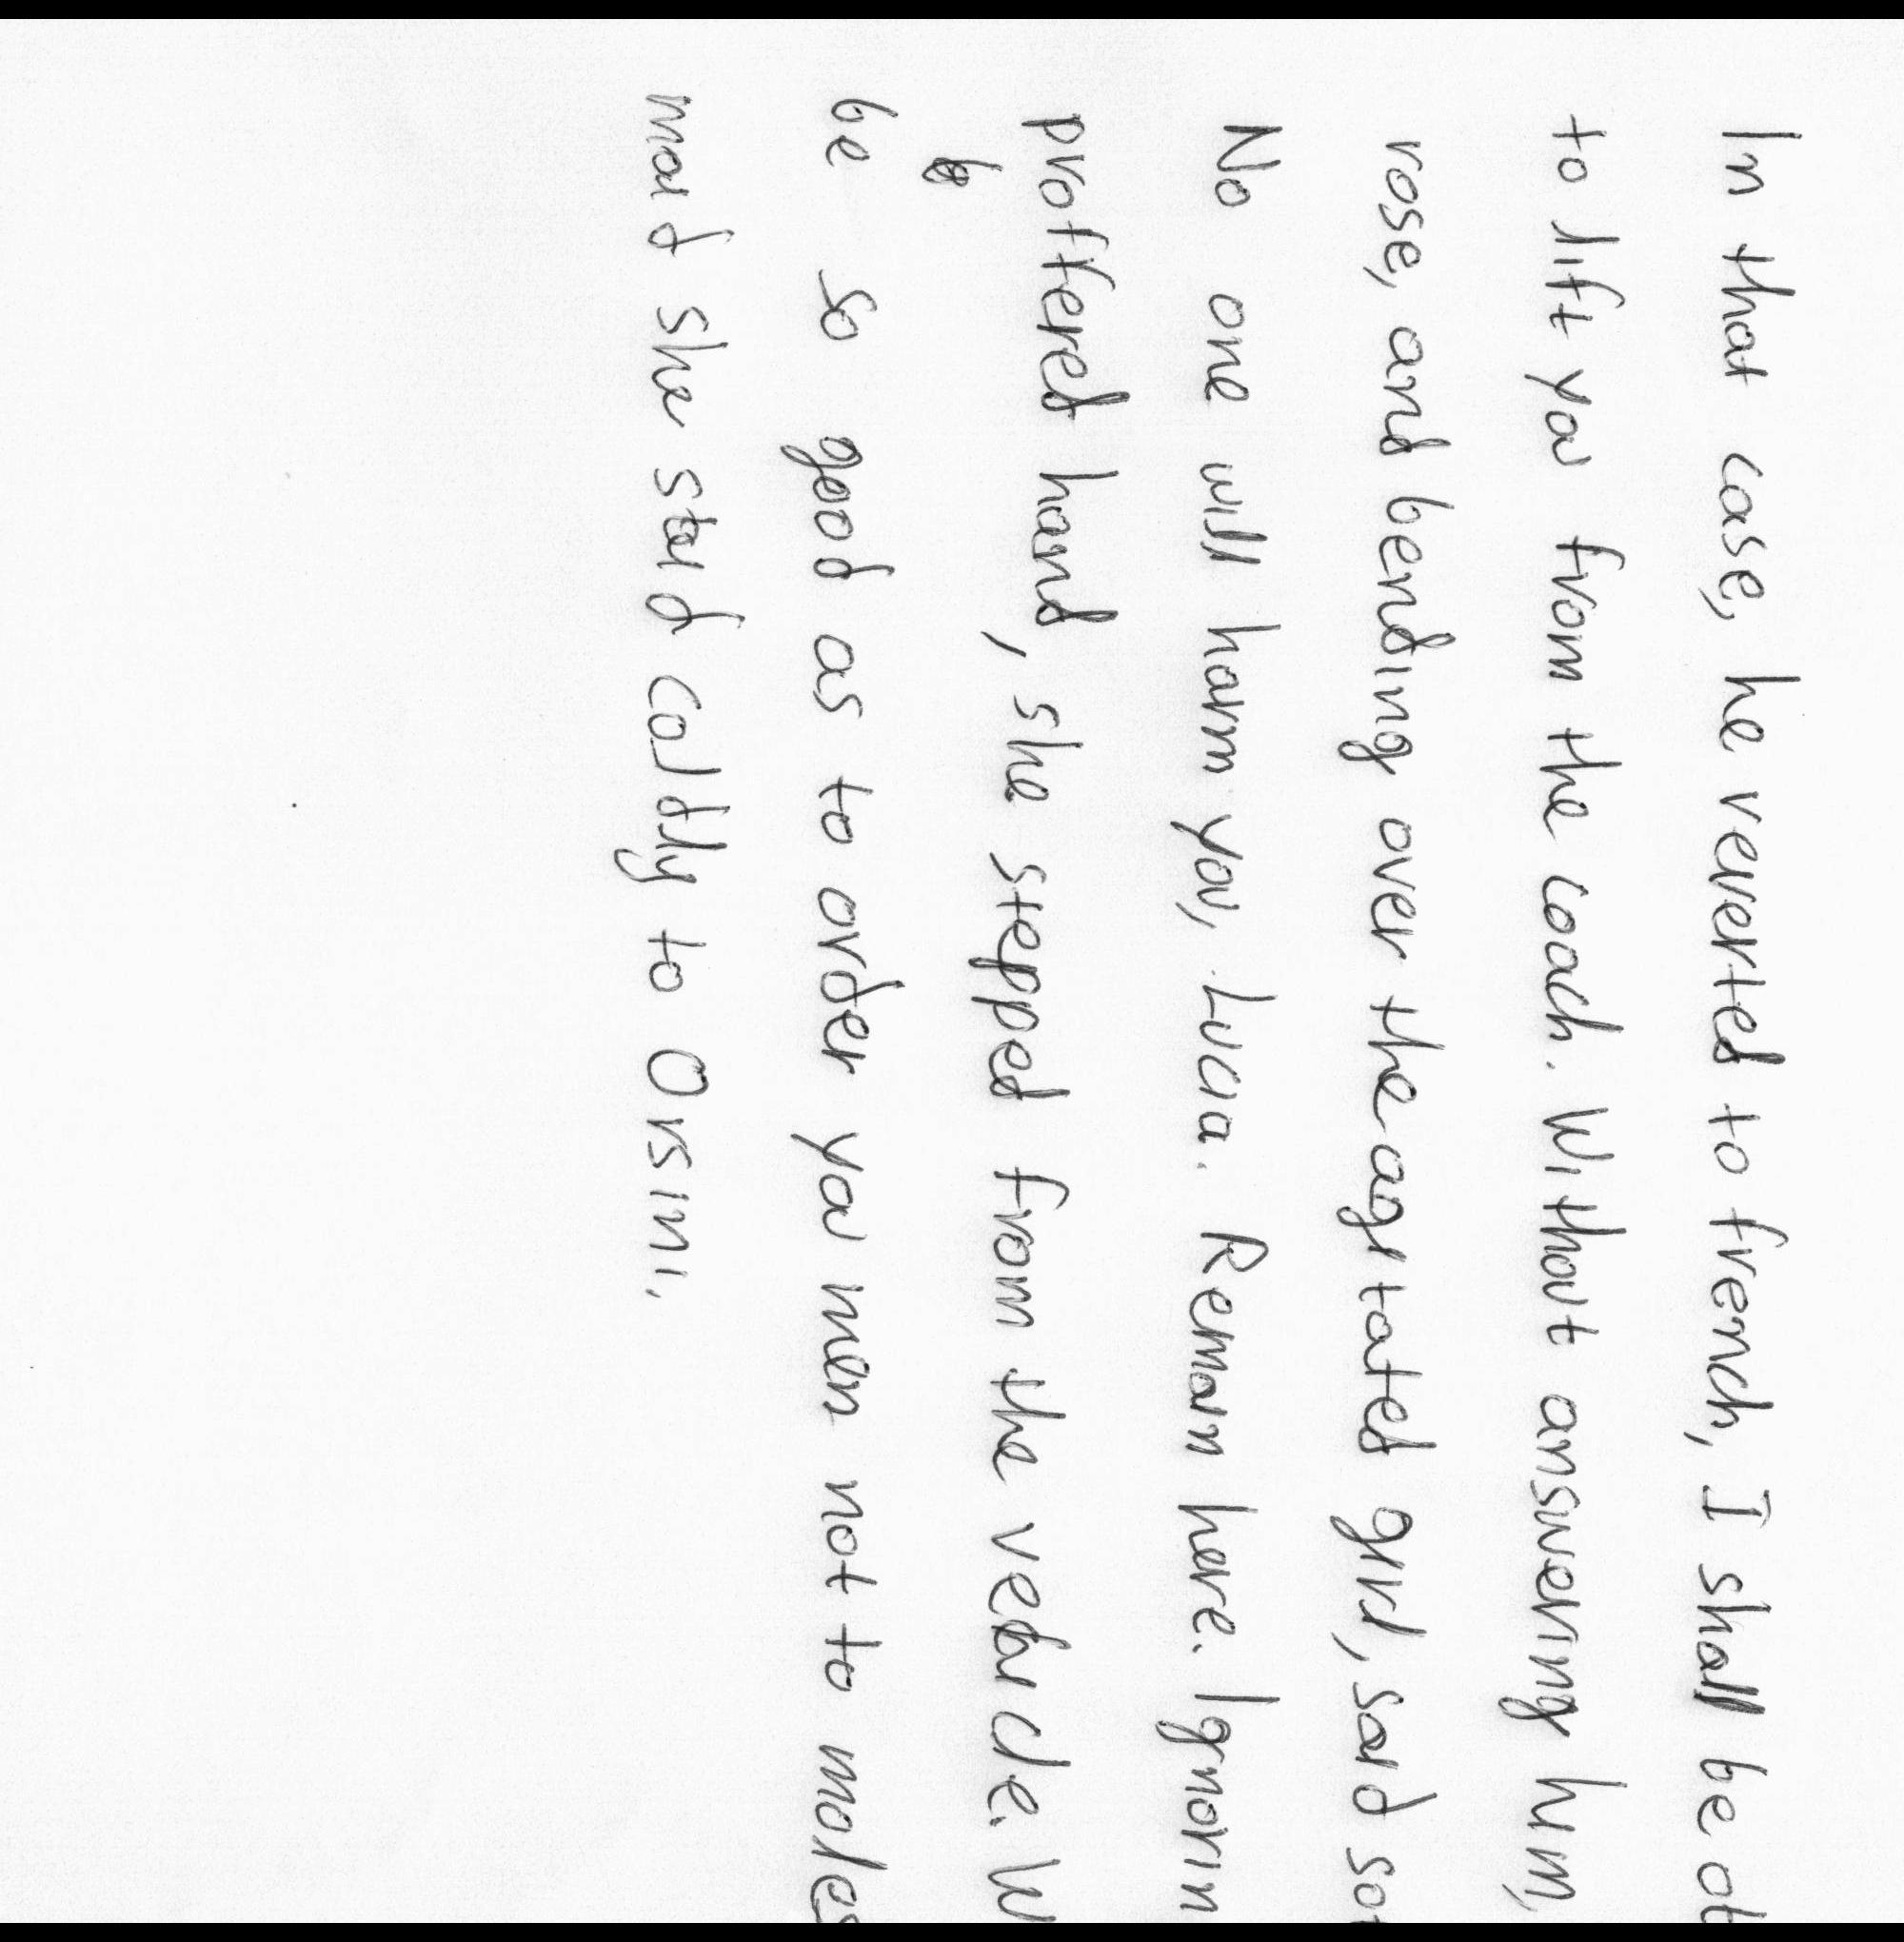 In that case, he reverted to french, I shall be
to lift you from the coach. Without answering him,
rose, and bending over the agitated girl, said
No one will harm you, Lucia. Remain here. Ignorin
proffered hand, she stepped from the vehicle. W
be so good as to order you men not to moles
maid she said coldly to Orsini.